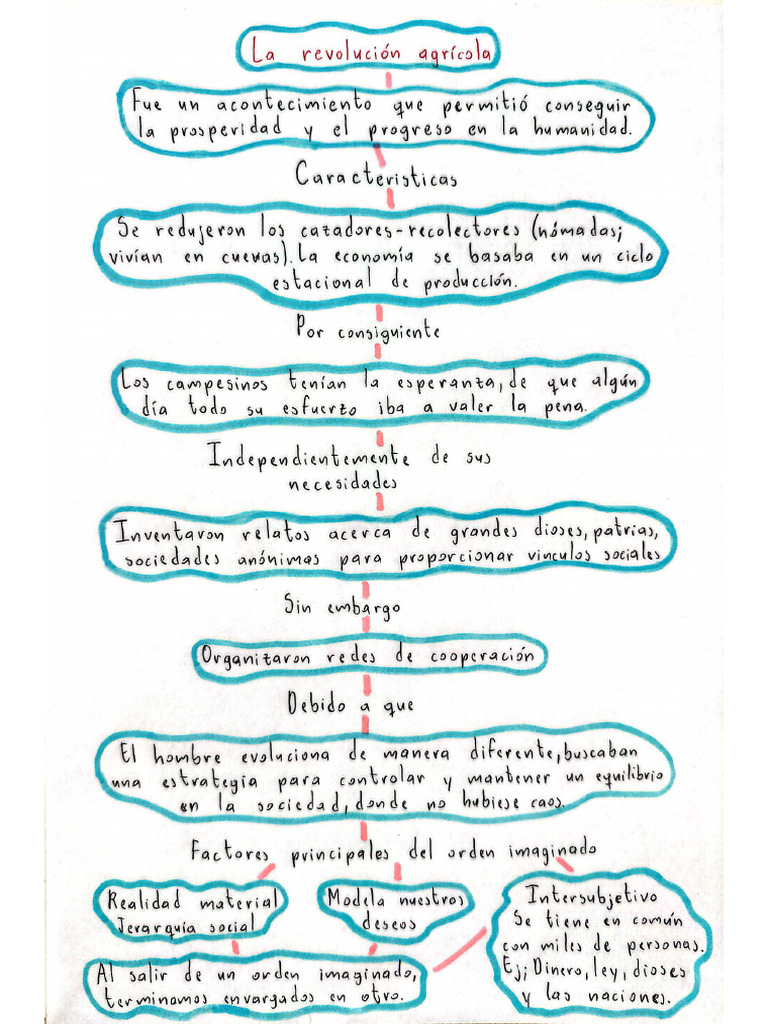 La revolución agrícola
Fue un acontecimiento que permitió conseguir
la prosperidad y el progreso en la humanidad.
Caracteristicas
Se redujeron los cazadores-recolectores (nómadas;
vivían en cuevas). La economía se basaba en un ciclo
estacional de producción.
Por consiguiente
Los campesinos tenían la esperanza, de que algún
día todo su esfuerzo iba a valer la pena.
Independientemente de sus
necesidades
Inventaron relatos acerca de grandes dioses, patrias,
sociedades anónimas para proporcionar vinculos sociales
Sin embargo
Organizaron redes de cooperación
Debido a que
El hombre evoluciona de manera diferente, buscaban
una estrategia para controlar y mantener un equilibrio
en la sociedad, donde no hubiese caos.
Factores principales del orden imaginado
Realidad material
Jerarquía social
Modela nuestros
deseos
Intersubjetivo
Se tiene en común
con miles de personas.
Ej; Dinero, ley, dioses
y las naciones.
Al salir de un orden imaginado,
terminamos envargados en otro.